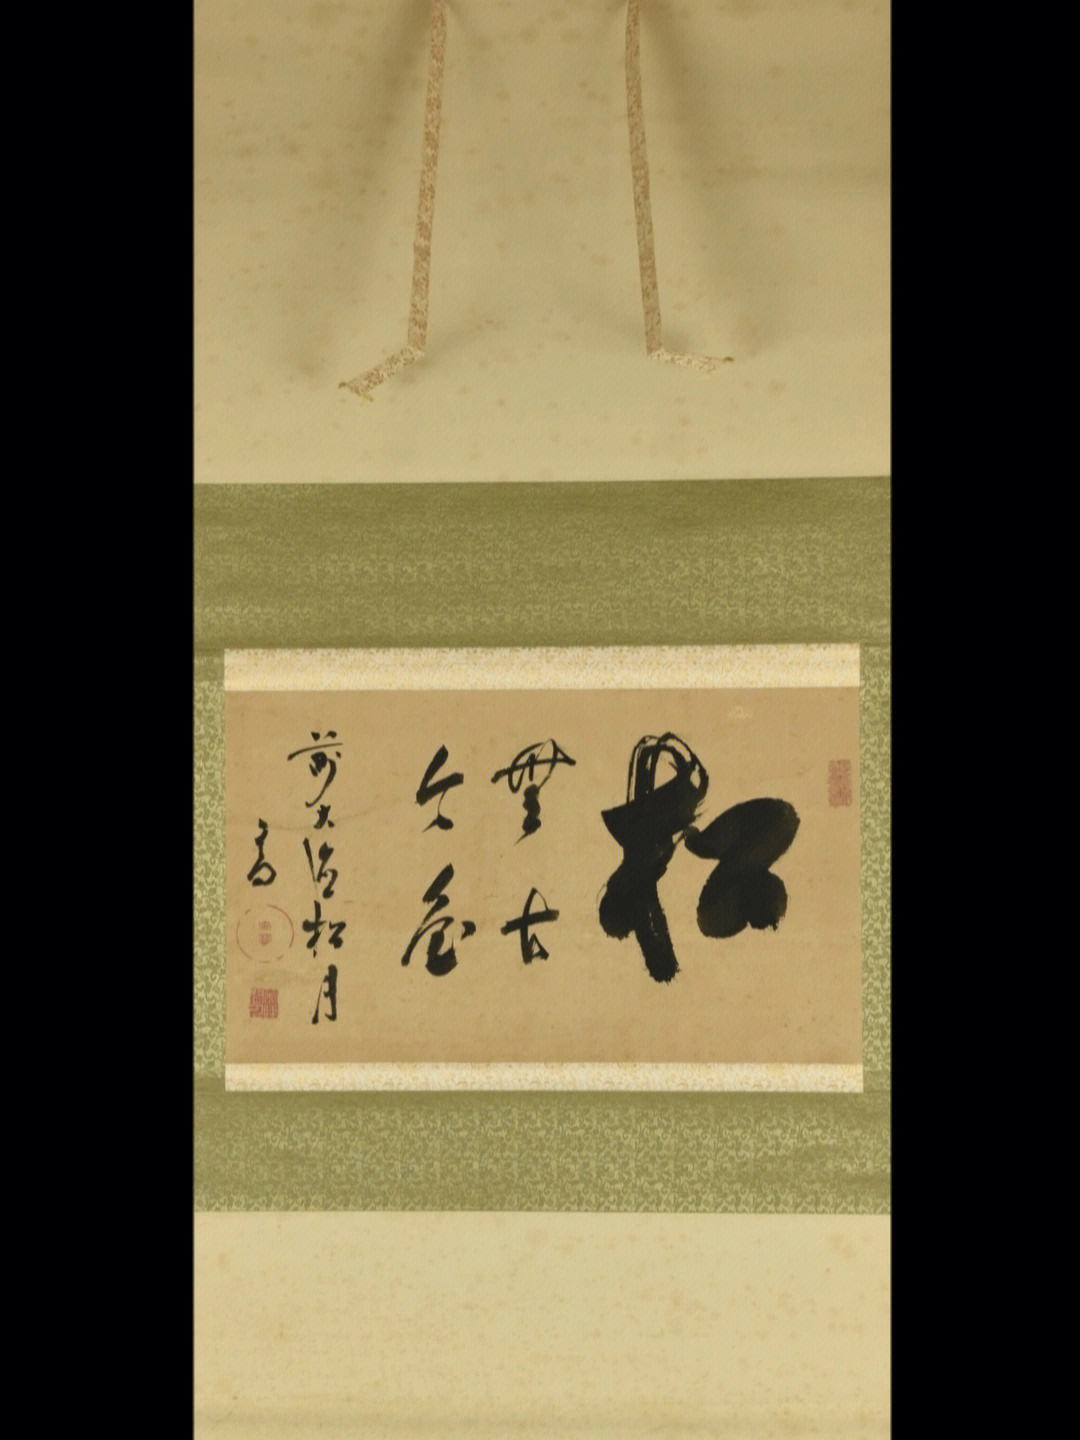 松
無古
今色
前大徳松月